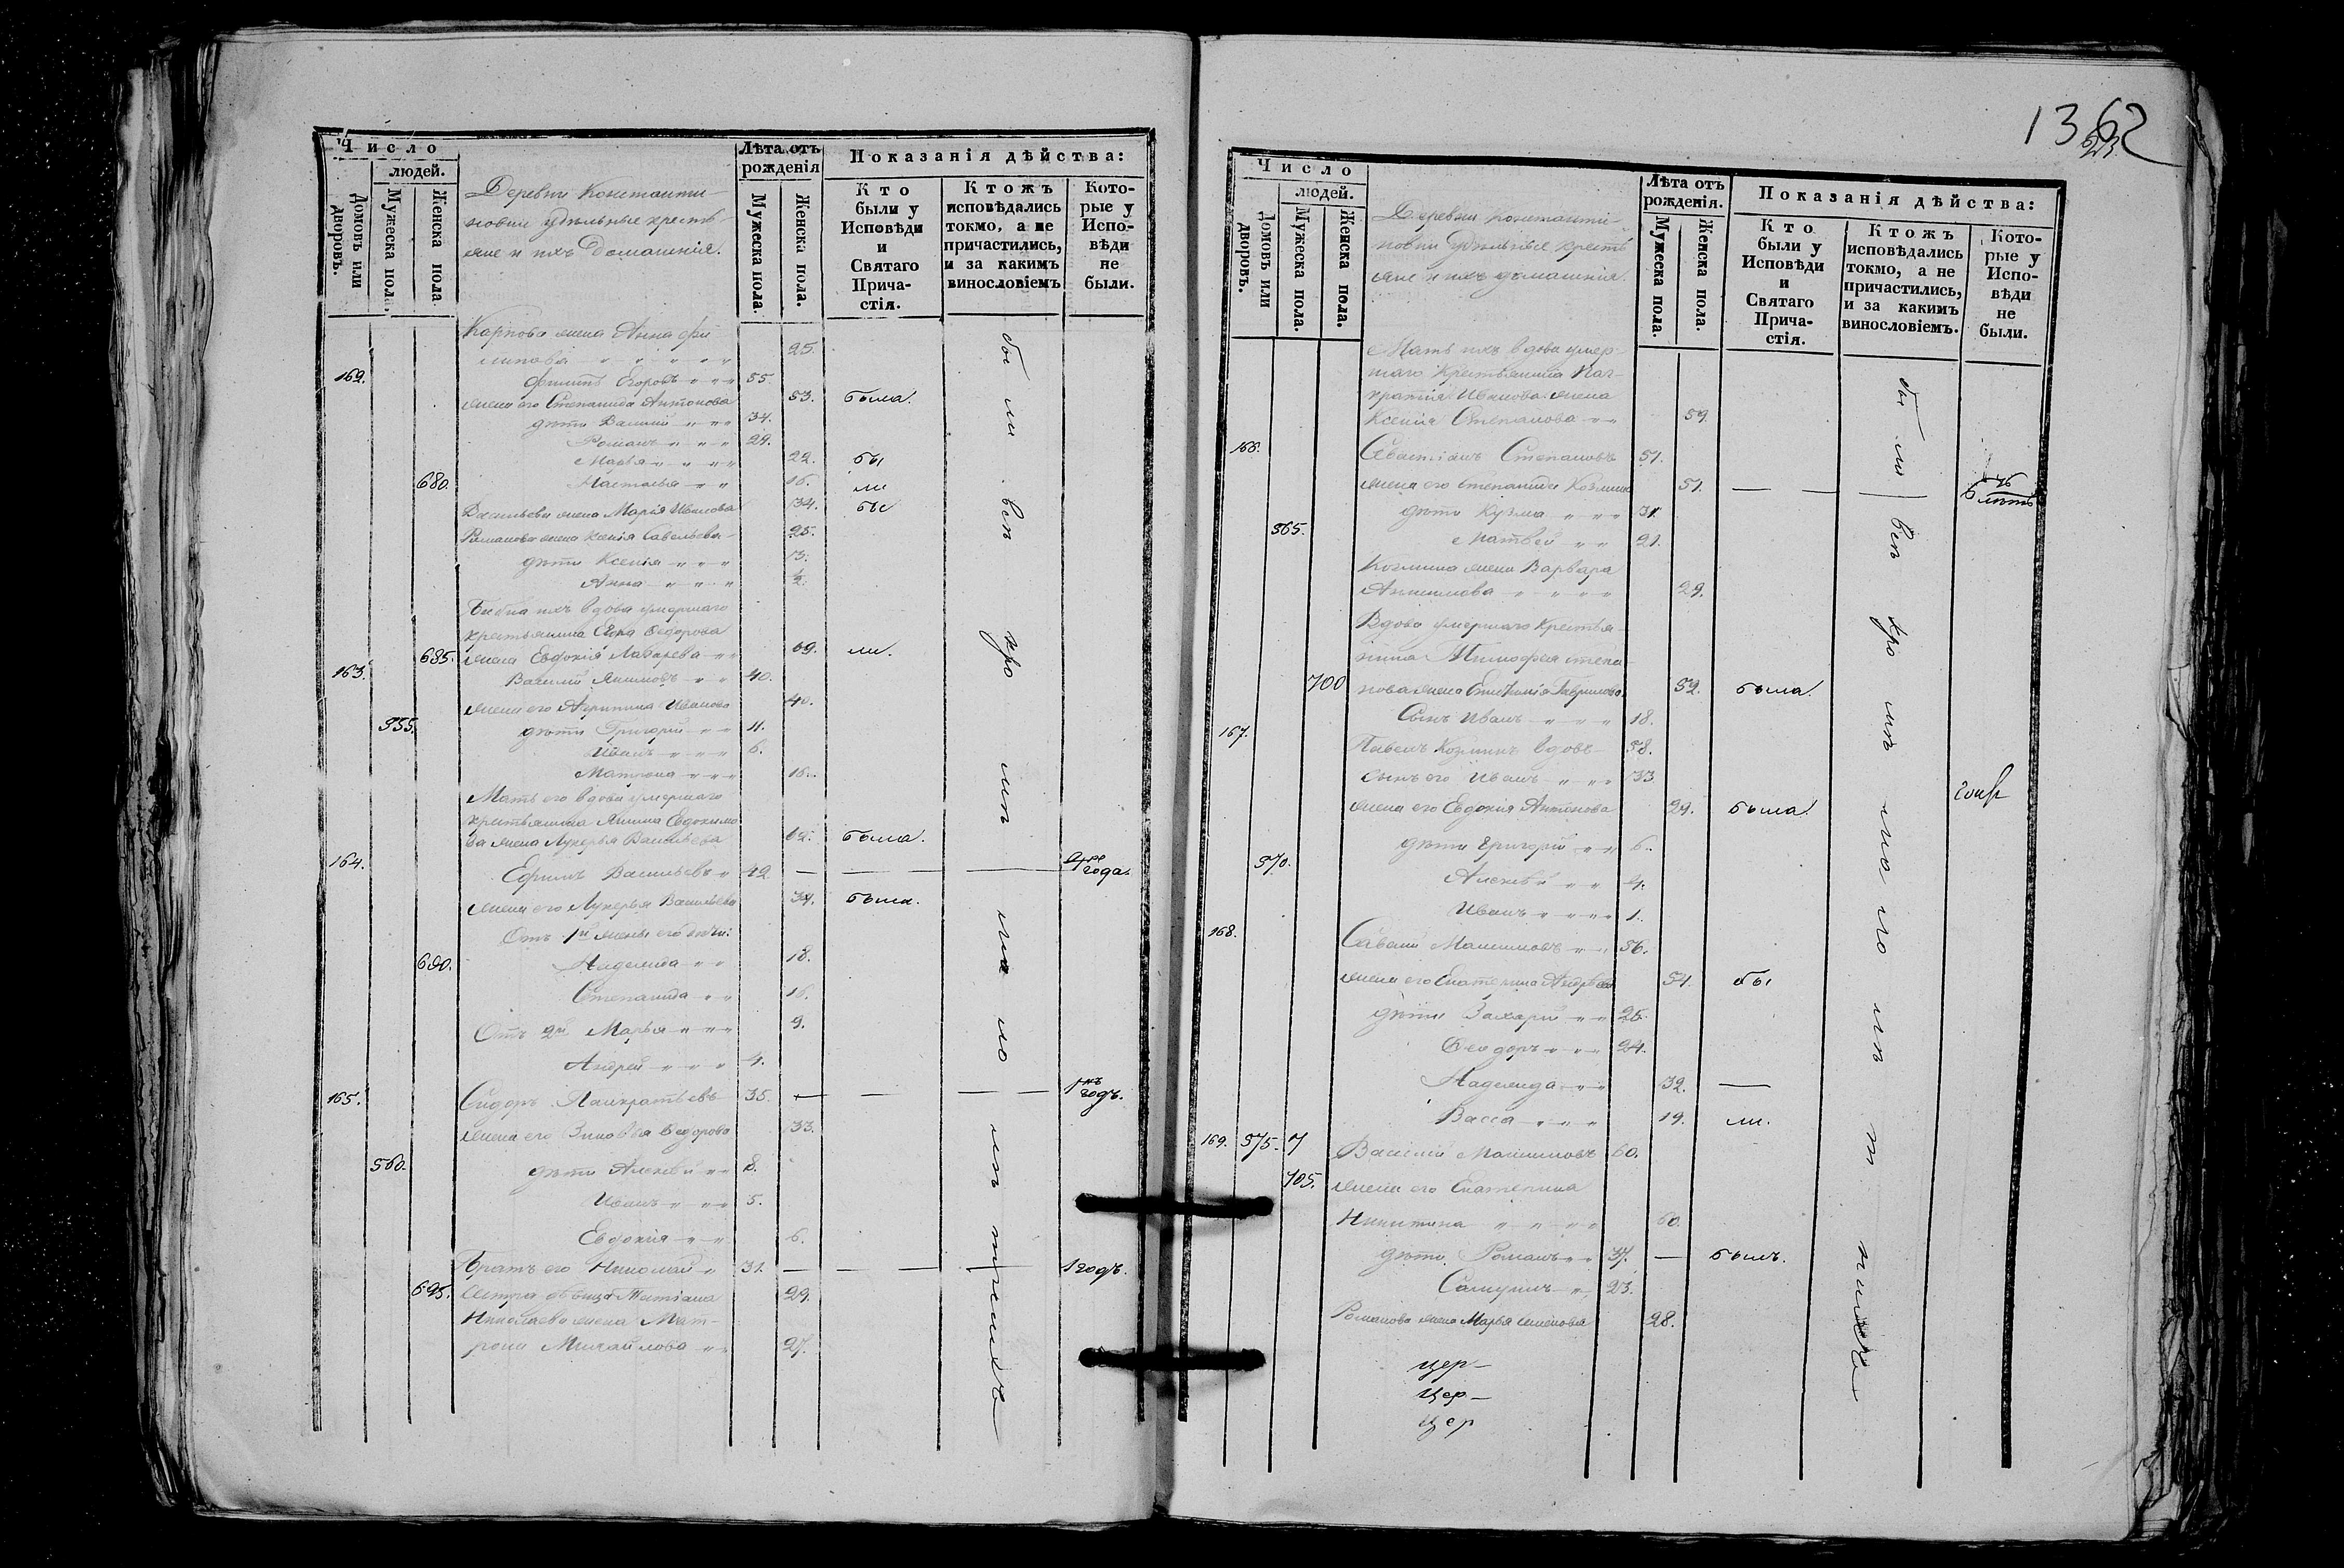 Число
людей.
Домовъ или дворовъ.
Мужеска пола.
Женска пола
Деревни Константи-
новки удѣльные кресть-
яне и ихъ домашнія.
Лѣта отъ рожденія
Мужеска пола.
Женска пола.
Показанія дѣйства:
Кто были у Исповѣди и Святаго Прича-стія.
Ктожъ исповѣдались токмо, а не причастились, и за какимъ винословіемъ
Кото-рые у Испо-вѣди не были.
Карпова жена Анна Фи-
липова 25.
162. Филипъ Егоровъ 55.
жена его Степанида Антонова 53. была.
дѣти Василій 34.
Романъ 29.
Марья 22. бы
680. Настасья 16. ли
Васильева жена Марія Иванова 34. бы
Романова жена Ксенія Савельева 25.
дѣти Ксенія 3.
Анна ½.
Бабка ихъ вдова умершаго
крестьянина Федорова
685. жена Евдокія Лазарева 69. ли.
163. Василій Якимовъ 40.
жена его Агрипина Иванова 40.
555. дѣти Григорій 11.
Иванъ 6.
Матрона 16.
Мать его вдова умершаго
крестьянина Якима Евдокимо
ва жена Лукерья Васильева 62. была.
164. Ефимъ Васильевъ 42 — — — года.
жена его Лукерья Васильева 34. была.
Отъ 1й жены его дочи:
690. Надежда 18.
Степанида 16.
Отъ 2й Марья 9.
Андрей 4.
165. Сидоръ Панкратьевъ 35. — — — 1нъ годъ.
жена его Зиновья Федорова 33.
560. дѣти Алексѣй 8.
Иванъ 5.
Евдокія 6.
Братъ его Николай 31. — — — 1 годъ.
695. Сестра Татіана 29.
Николаева жена Мат-
рона Михайлова 27.
бы ли всѣ
1362
Число
людей.
Домовъ или дворовъ.
Мужеска пола.
Женска пола.
Деревни Константи-
новки Удѣльные кресть
яне и ихъ домашнія.
Лѣта отъ рожденія.
Мужеска пола.
Женска пола.
Показанія дѣйства:
Кто были у Исповѣди и Святаго Прича-стія.
Ктожъ исповѣдались токмо, а не причастились, и за какимъ винословіемъ.
Кото-рые у Испо-вѣди не были.
Мать ихъ вдова умер-
шаго крестьянина Пан-
кратія Иванова жена
Ксенія Степанова 59.
166. Севастіанъ Степановъ 51.
жена его Степанида Козмина 51. — — лѣтъ
565. дѣти Кузма 31.
Матвей 21.
Козмина жена Варвара
Анисимова 29.
Вдова умершаго Крестья-
нина Тимофея Степа
700 нова жена Гаврилова 52. была.
Сынъ Иванъ 18.
167. Павелъ Козминъ вдовъ 58.
сынъ его Иванъ 33
жена его Евдокия Антонова 29. была.
дѣти Григорій 6.
570. Алексѣй 4.
Иванъ 1.
168. Савелій Максимовъ 56.
жена его Екатерина Андреева 51. бы
дѣти Захарій 25.
Феодоръ 24.
Надежда 32. —
Васса 19. ли.
169. 575. Василій Максимовъ 60.
705. жена его Екатерина
Никитина 60.
дѣти Романъ 37. — былъ.
23.
Романова жена Марья Семенова 28.
цер-
цер-
цер
бы ли всѣ кро мѣ